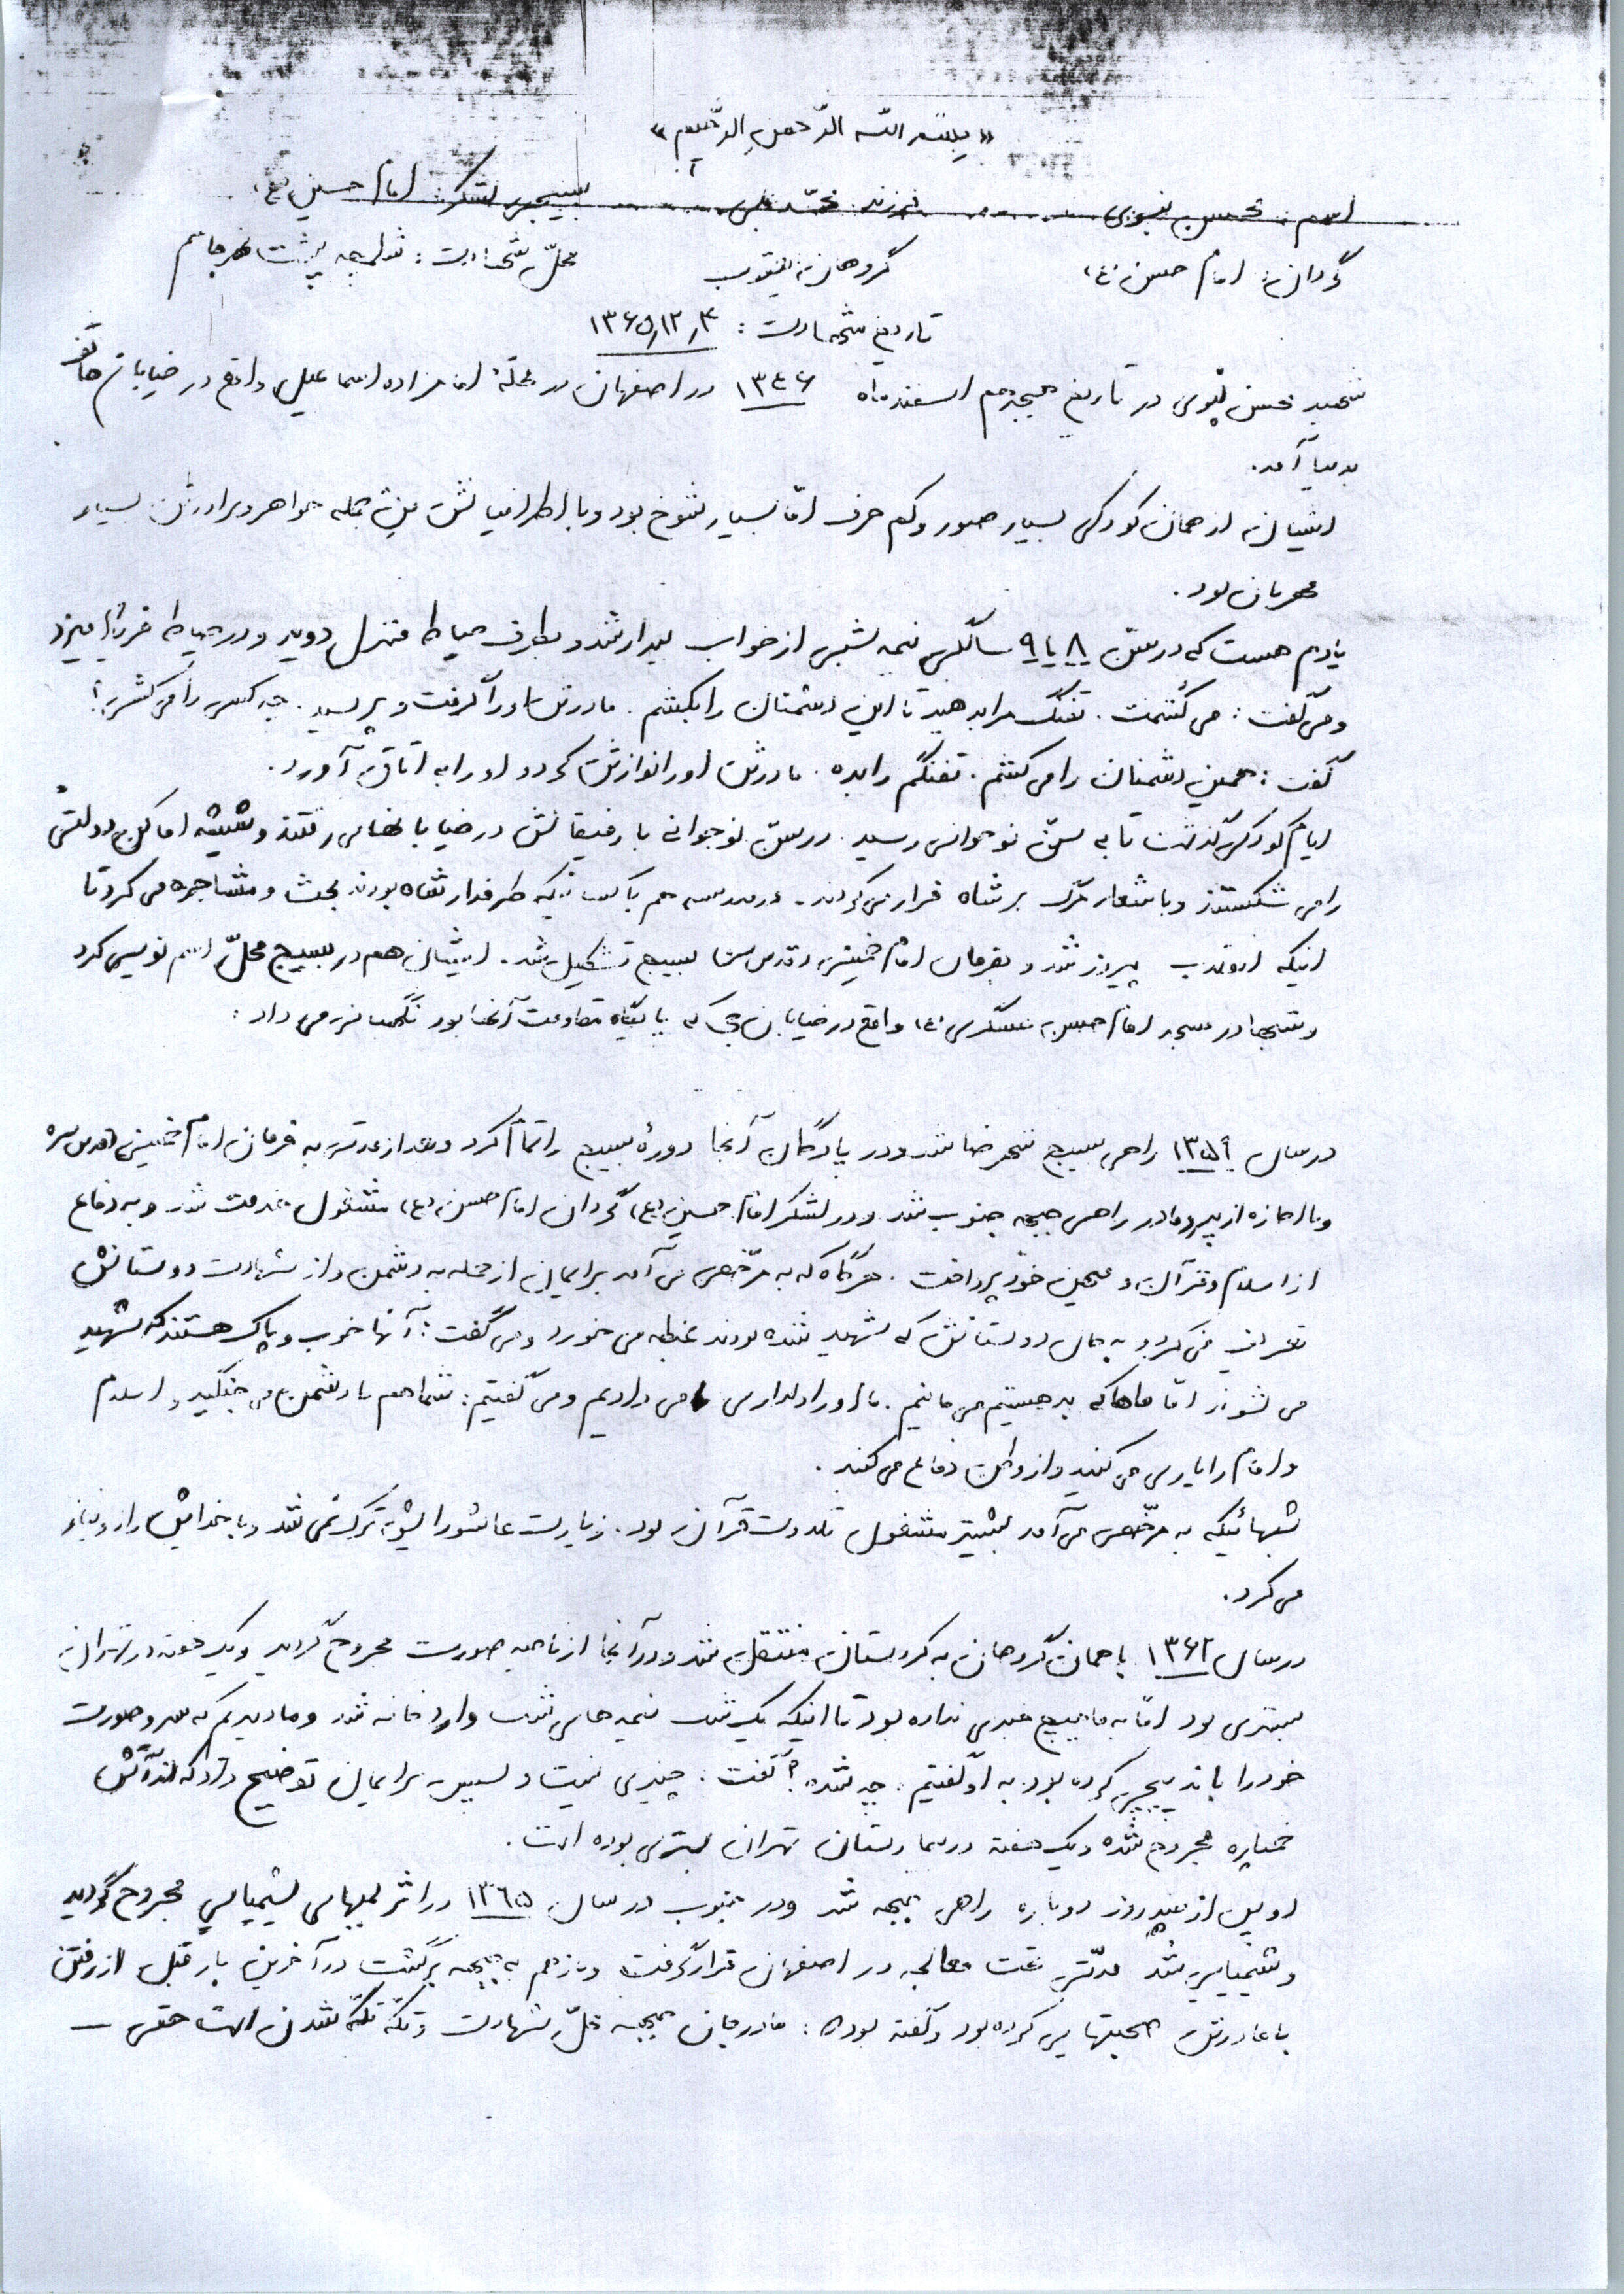 « بسم اللّه الرّحمن الرّحیم »
اسم: محسن فرزند: محمّد علی بسیجی لشکر: امام حسین (ع)
گردان: امام حسن (ع) گروهان: یعقوب محلّ شهادت: شلمچه پشت نهر جاسم
تاریخ شهادت: ۱۳۶۵٫۱۲٫۴
شهید محسن در تاریخ هیجدهم اسفندماه ۱۳۴۶ در اصفهان در محلّهٔ امامزاده اسماعیل واقع در خیابان هاتف
بدنیا آمد.
ایشان از همان کودکی بسیار صبور و کم حرف امّا بسیار شوخ بود و با اطرافیانش من جمله خواهر و برادرش بسیار
مهربان بود.
یادم هست که در سنّ ۸ یا ۹ سالگی نیمه شبی از خواب بیدار شد و بطرف حیاط منزل دوید و در حیاط فریاد میزد
و می گفت: می کشمت. تفنگ مرا بدهید تا این دشمنان را بکشم. مادرش او را گرفت و پرسید. چه کسی را می کشی؟
گفت: همین دشمنان را می کشم. تفنگم را بده. مادرش او را نوازش کرد و او را به اتاق آورد.
ایام کودکی گذشت تا به سنّ نوجوانی رسید. در سنّ نوجوانی با رفیقانش در خیابانها می رفتند و شیشه اماکن دولتی
را می شکستند و با شعار مرگ بر شاه فرار می کردند. در مدرسه هم با کسانیکه طرفدار شاه بودند بحث و مشاجره می کرد تا
اینکه انقلاب پیروز شد و بفرمان امام خمینی (قدس سره) بسیج تشکیل شد. ایشان هم در بسیج محلّ اسم نویسی کرد
و شبها در مسجد امام حسن عسگری (ع) واقع در خیابان که پایگاه مقاومت آنها بود نگهبانی می داد:
در سال ۱۳۵۹ راهی بسیج شهرضا شد و در پادگان آنجا دورهٔ بسیج را تمام کرد و بعد از مدتی به فرمان امام خمینی (قدس سره)
و با اجازه از پدر و مادر راهی جبهه جنوب شد و در لشکر امام حسین (ع) گردان امام حسن (ع) مشغول خدمت شد و به دفاع
از اسلام و قرآن و میهن خود پرداخت. هرگاه که به مرّخصی می آمد برایمان از حمله به دشمن و از شهادت دوستانش
تعریف می کرد و به حال دوستانش که شهید شده بودند غبطه می خورد و می گفت: آنها خوب و پاک هستند که شهید
می شوند امّا ماها که بد هستیم می مانیم. ما او را دلداری می دادیم و می گفتیم: شما هم با دشمن می جنگید و اسلام
و امام را یاری می کنید و از وطن دفاع می کنید.
شبهائیکه به مرّخصی می آمد بیشتر مشغول تلاوت قرآن بود. زیارت عاشورایش ترک نمی شد و با خدایش راز و نیاز
می کرد.
در سال ۱۳۶۲ با همان گروهان به کردستان منتقل شد و در آنجا از ناحیه صورت مجروح گردید و یک هفته در تهران
بستری بود امّا به ما هیچ خبری نداده بود تا اینکه یک شب نیمه های شب وارد خانه شد و ما دیدیم که سر و صورت
خود را باندپیچی کرده بود به او گفتیم: چه شده؟ گفت: چیزی نیست و سپس برایمان توضیح داد که در اثر
خمپاره مجروح شده و یک هفته در بیمارستان تهران بستری بوده است.
او پس از چند روز دوباره راهی جبهه شد و در جنوب در سال ۱۳۶۵ در اثر بمبهای شیمیایی مجروح گردید
و شیمیایی شد مدّتی تحت معالجه در اصفهان قرار گرفت و باز هم به جبهه برگشت در آخرین بار قبل از رفتن
با مادرش صحبتهایی کرده بود و گفته بود: مادر جان جبهه محلّ شهادت و تکّه تکّه شدن است حتی —